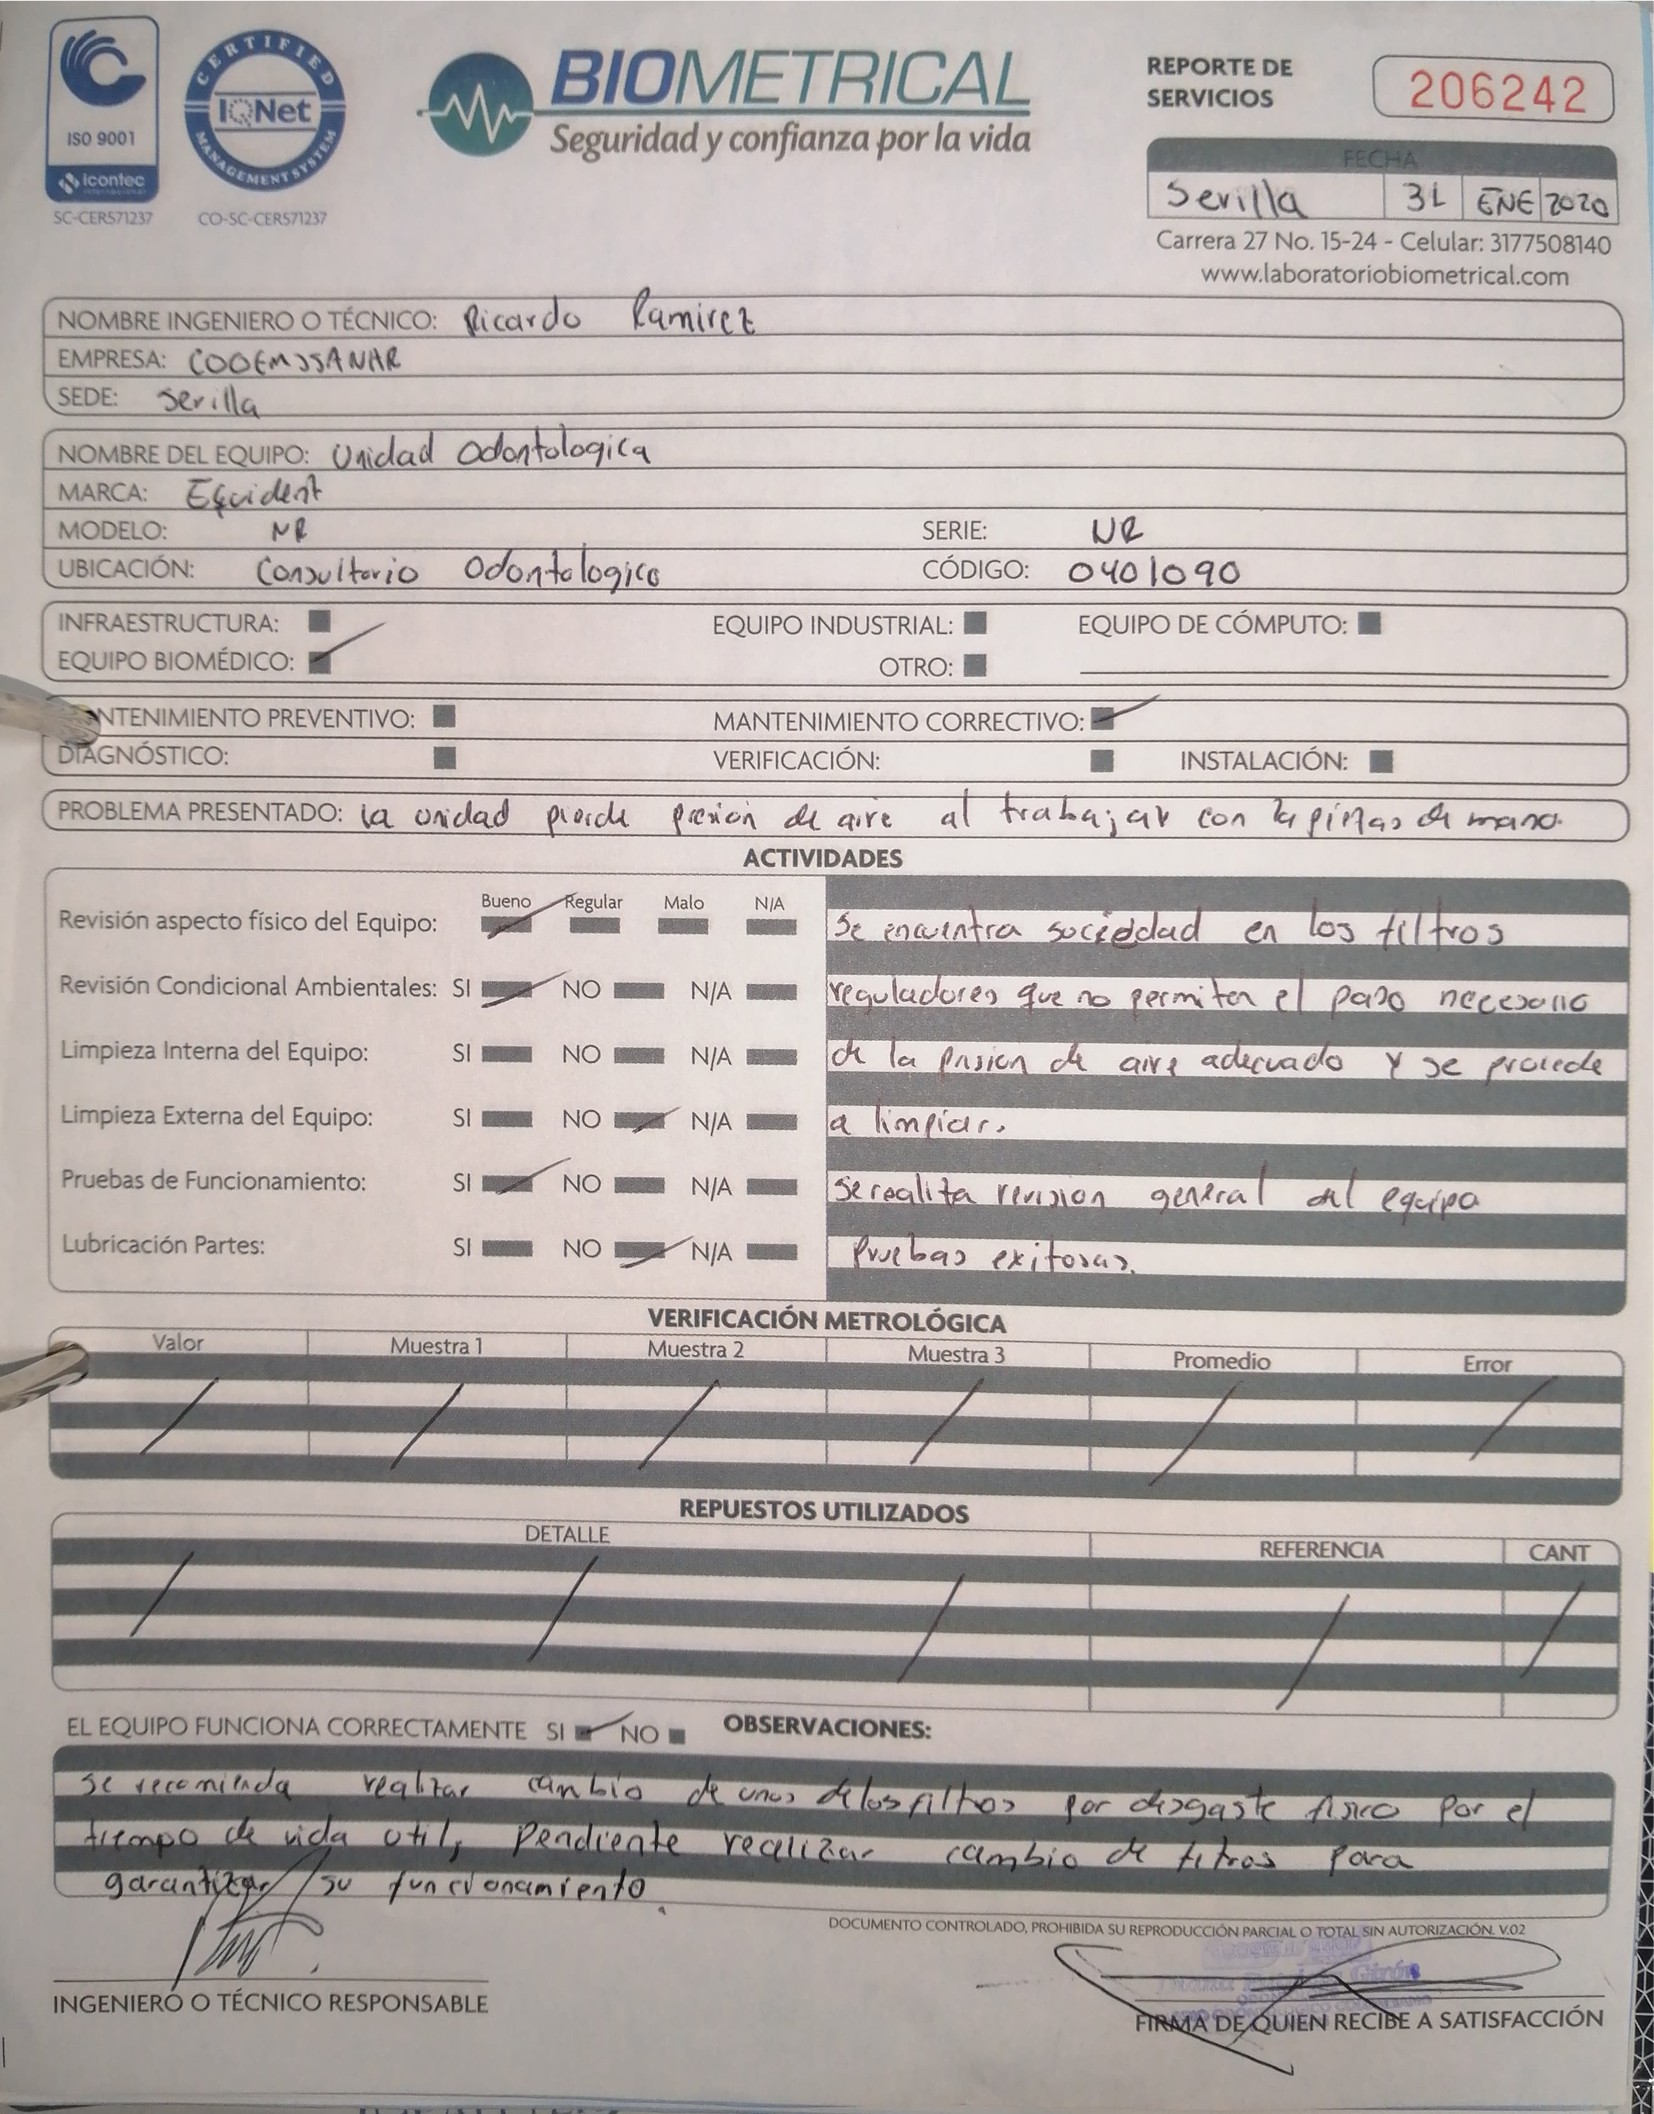 CERTIFIED
IQNet
MANAGEMENT SYSTEM
ISO 9001
icontec
SC-CER571237
CO-SC-CER571237
BIOMETRICAL
Seguridad y confianza por la vida
REPORTE DE
SERVICIOS
206242
FECHA
Sevilla 31 ENE 2020
Carrera 27 No. 15-24 - Celular: 3177508140
www.laboratoriobiometrical.com
NOMBRE INGENIERO O TÉCNICO: Ricardo Ramirez
EMPRESA: COOEMSSANAR
SEDE: Sevilla
NOMBRE DEL EQUIPO: Unidad Odontologica
MARCA: Equident
MODELO: NR SERIE: NR
UBICACIÓN: Consultorio Odontologico CÓDIGO: 0401090
INFRAESTRUCTURA: EQUIPO INDUSTRIAL: EQUIPO DE CÓMPUTO:
EQUIPO BIOMÉDICO: OTRO:
NTENIMIENTO PREVENTIVO: MANTENIMIENTO CORRECTIVO:
DIAGNÓSTICO: VERIFICACIÓN: INSTALACIÓN:
PROBLEMA PRESENTADO: la unidad pierde presion de aire al trabajar con la piezas de mano.
ACTIVIDADES
Bueno Regular Malo N/A
Revisión aspecto físico del Equipo: Se encuentra sociedad en los filtros
Revisión Condicional Ambientales: SI NO N/A reguladores que no permiten el paso necesario
Limpieza Interna del Equipo: SI NO N/A de la presion de aire adecuado y se procede
Limpieza Externa del Equipo: SI NO N/A a limpiar.
Pruebas de Funcionamiento: SI NO N/A Se realiza revision general del equipo
Lubricación Partes: SI NO N/A Pruebas exitosas.
VERIFICACIÓN METROLÓGICA
Valor Muestra 1 Muestra 2 Muestra 3 Promedio Error
REPUESTOS UTILIZADOS
DETALLE REFERENCIA CANT
EL EQUIPO FUNCIONA CORRECTAMENTE SI NO OBSERVACIONES:
se recomienda realizar cambio de unos de los filtros por desgaste fisico por el
tiempo de vida util, pendiente realizar cambio de filtros para
garantizar su funcionamiento.
DOCUMENTO CONTROLADO, PROHIBIDA SU REPRODUCCIÓN PARCIAL O TOTAL SIN AUTORIZACIÓN. V.02
INGENIERO O TÉCNICO RESPONSABLE
FIRMA DE QUIEN RECIBE A SATISFACCIÓN